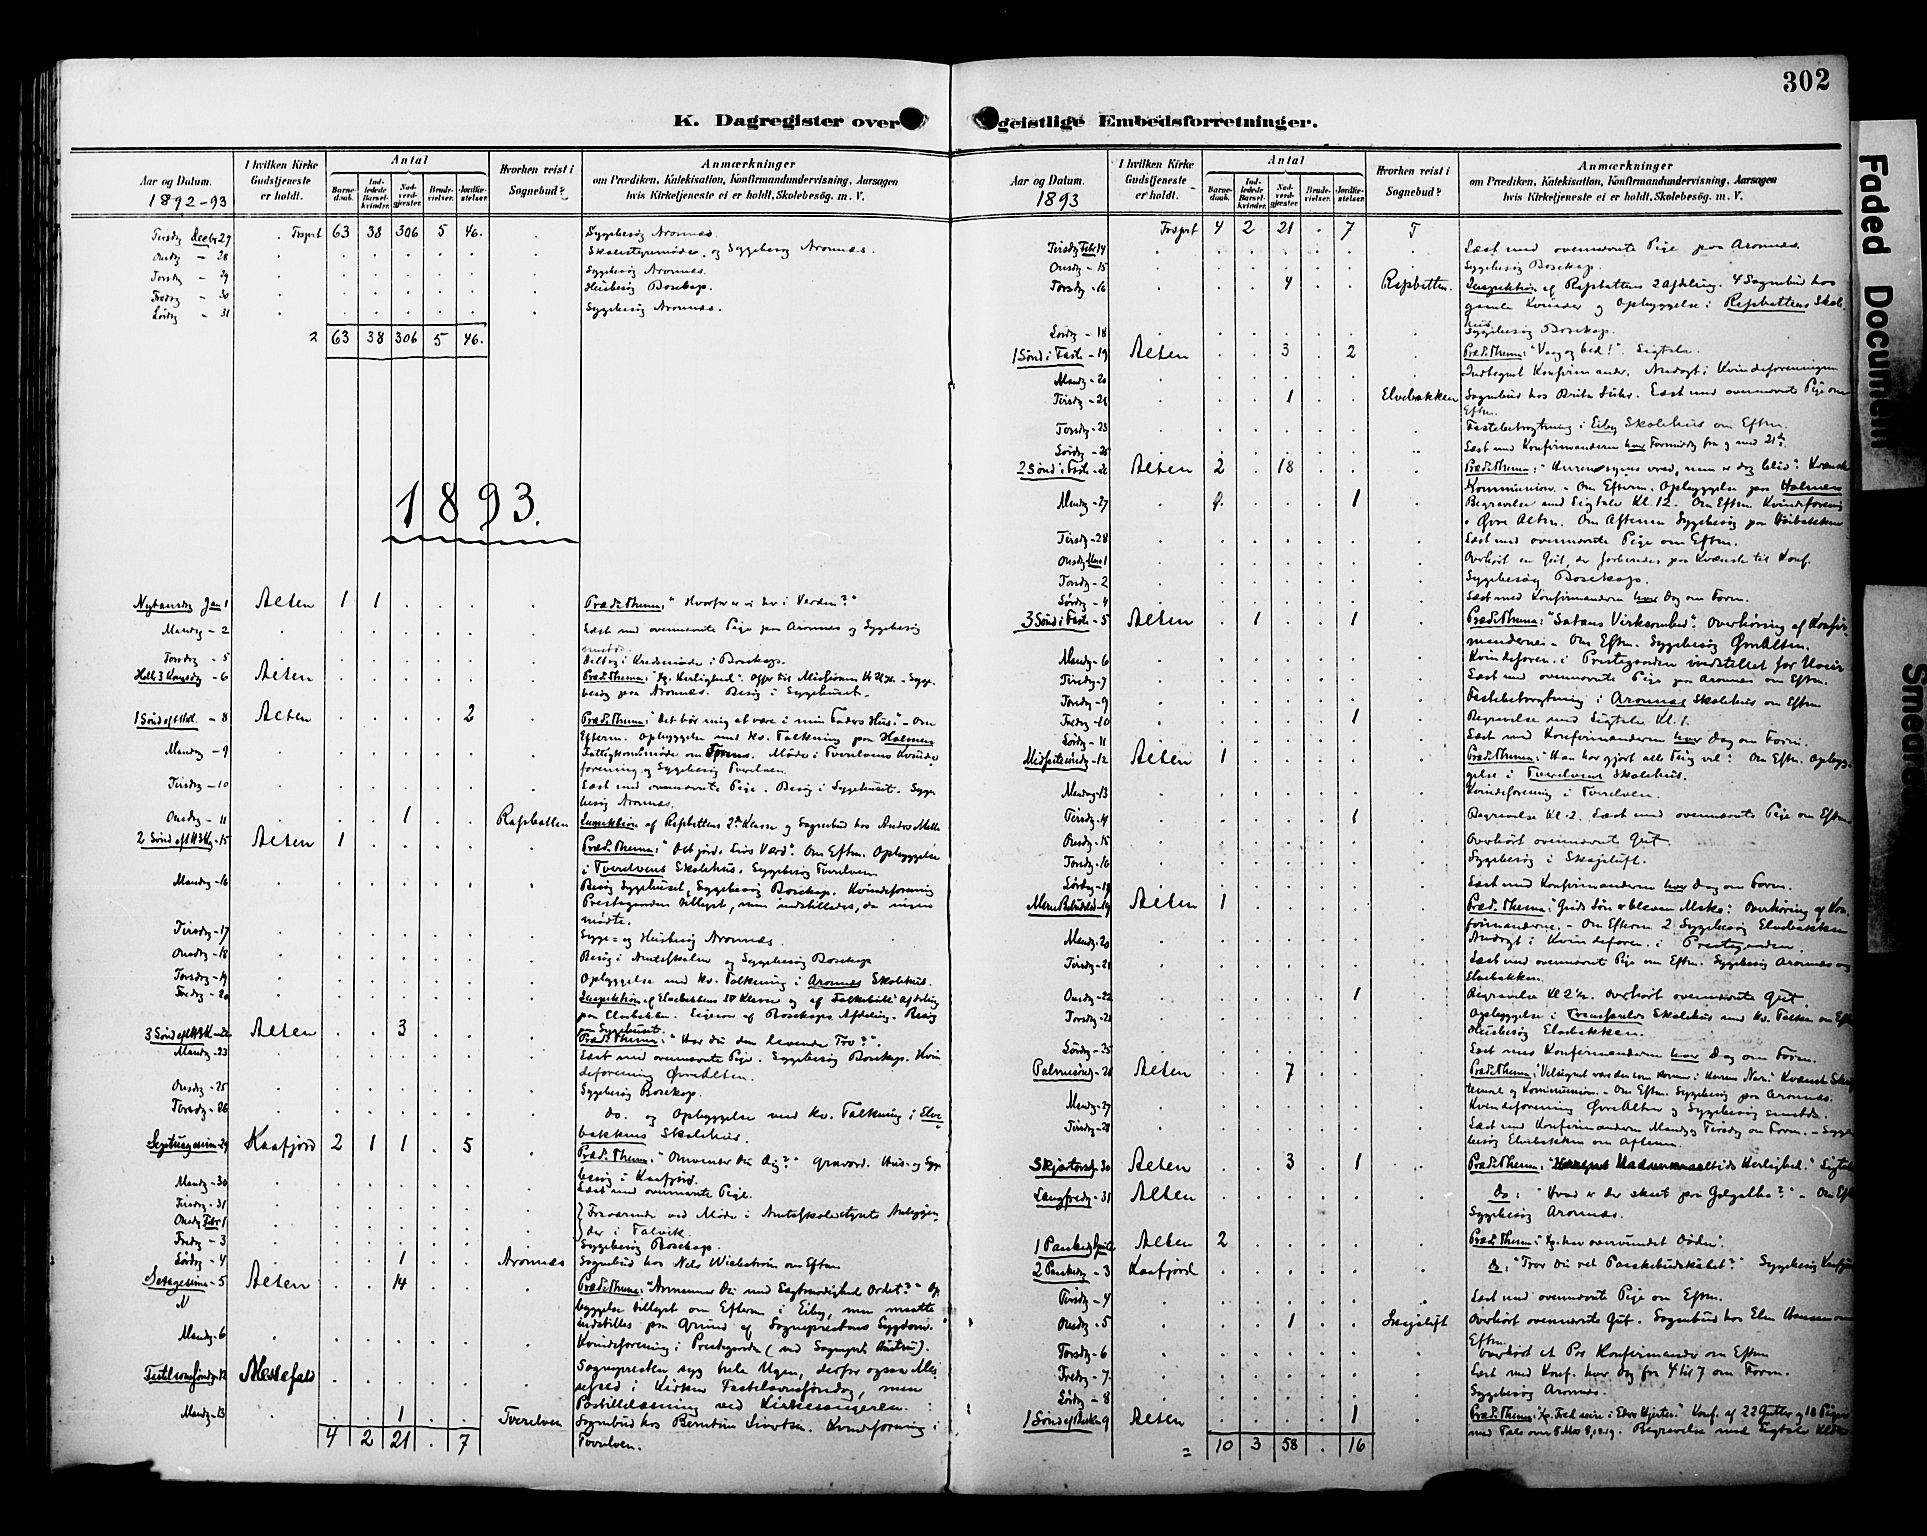 302
K. Dagregister over geistlige Embedsforretninger.
Faded Document
Smeared
Aar og Datum.
1892-93
I hvilken Kirke Gudstjeneste er holdt.
Antal
Barnedaab.
Indledede Barselkvinder.
Nadverdgjester.
Brudevielser.
Jordfæstelser.
Hvorhen reist i Sognebud?
Anmærkninger
om Prædiken, Katekisation, Konfirmandundervisning, Aarsagen
hvis Kirketjeneste ei er holdt, Skolebesøg. m. V.
Tirsdg Decbr 27 Trsprt 63 38 306 5 46. Sygebesøg Aronnæs.
Onsdg - 28 Skolestyremøde, og Sygebesøg Aronnæs.
Torsdg - 29 Sygebesøg Aronnæs.
Fredg - 30 Husbesøg Bosekop.
Lørdg - 31 Sygebesøg Aronnæs.
63 38 306 5 46.
1893.
Nytaarsdg Jan 1 Alten 1 1 Præd. Thema: "Hvorfor er vi her i Verden?"
Mandg - 2 Læst med ovennævnte Pige paa Aronnæs og Sygebesøg
Torsdg - 5 i Bosekop.
Hell 3 Kongsdg - 6 Alten Præd. Thema: "Xp. Herlighed". Offer til Missionen
besøg paa Aronnæs. Besøg i Sygehuset.
1 Sønd eft - 8 Alten 2 Præd. Thema: "Det bør mig at være i min Faders Hus." - Om
Efterm. Opbyggelse med kv. Talkning paa Holmen
Mandg - 9 Fattigkomm.møde om Form. Møde i Tverelvens Kvinde
forening og Sygebesøg Tverelven.
Tirsdg - 10 Læst med ovennævnte Pige. Besøg i Sygehuset. Syge
besøg Aronnæs.
Onsdg - 11 1 Rafsbotten Inspektion af Rafsbottens 2den Klasse og Sognebud hos
2 Sønd eft H3K - 15 Alten 1 Præd. Thema: Om Eftm. Opbyggelse
i Tverelvens Skolehus. Sygebesøg Tverelven.
Mandg - 16 Besøg Sygehuset, Sygebesøg Bosekop. Kvindeforening
Prestegaarden tillyst, men indstilledes, da ingen
mødte.
Tirsdg - 17 Syge- og Husbesøg Aronnæs.
Onsdg - 18 Besøg i Amtsskolen og Sygebesøg Bosekop
Torsdg - 19 Opbyggelse med kv. Talkning i Aronnæs Skolehus.
Fredg - 20 Inspektion af Elvebakkens Klasse og af
paa Elvebakken. Ligesom af Bosekops Afdeling. Besøg
paa Sygehuset.
3 Sønd eft H3K - 22 Alten 3 Præd. Thema: "Har du den levende Tro?"
Mandg - 23 Læst med ovennævnte Pige. Sygebesøg Bosekop. Kvin
deforening ØvreAlten.
Onsdg - 25 Sygebesøg Bosekop.
Torsdg - 26 do. og Opbyggelse med kv. Talkning i Elve
bakkens Skolehus.
Septuagesima - 29 Kaafjord 2 1 1 . 5 Præd. Thema: "Omvender Du Dig?" Hus- og Syge
besøg i Kaafjord.
Mandg - 30 Læst med ovennævnte Pige.
Tirsdg - 31
Onsdg Febr 1 Fraværende ved Møde i Amtsskolestyrets
Fredg - 3 i Talvik.
Sygebesøg Bosekop.
Lørdg - 4 1 Aronnæs Sognebud hos Nels Wickstrøm om Eftm
Sexagesima - 5 Alten 14 Præd. Thema: "Annammer Du med Sagtmodighed Ordet?" Op
byggelse tillyst om Efterm i Eiby, men maatte
indstilles paa Grund af Sogneprestens Sygdom.
Mandg - 6 Kvindeforening i Prestegaarden (ved Sognepr. Hustru).
Fastelavnssøndg - 12 Messefald Sognepresten syg hele Ugen, derfor ogsaa Mes
sefald i Kirken Fastelavnssøndag, men
Postillelæsning ved Kirkesangeren.
Mandg - 13 1 Tverelven Sognebud hos Berntine Sivertsen. Kvindeforening i
Tverelven.
4 2 21 . 7
Aar og Datum.
1893
I hvilken Kirke Gudstjeneste er holdt.
Antal
Barnedaab.
Indledede Barselkvinder.
Nadverdgjester.
Brudevielser.
Jordfæstelser.
Hvorhen reist i Sognebud?
Anmærkninger
om Prædiken, Katekisation, Konfirmandundervisning, Aarsagen
hvis Kirketjeneste ei er holdt, Skolebesøg. m. V.
Trsprt 4 2 21 . 7
Tirsdg Feb 14 Læst med ovennævnte Pige paa Aronnæs.
Onsdg - 15 Sygebesøg Bosekop.
Torsdg - 16 4 Rafsbotten. Inspektion af Rafsbottens 2 Afdeling. 4 Sognebud hos
gamle Kvinder og Opbyggelse i Rafsbottens Skole
hus
Lørdg - 18 Sygebesøg Bosekop.
1 Sønd i Faste - 19 Alten 3 2 Præd. Thema: "Vaag og bed!". Ligtale.
Mandg - 20 Indtegnet Konfirmander. Andagt i Kvindeforeningen
Tirsdg - 21 1 Elvebakken Sognebud hos Læst med ovennævnte Pige om
Eftm.
Torsdg - 23 Fastebetragtning i Eiby Skolehus om Eftm.
Lørdg - 25 Læst med Konfirmanderne hver Formiddg fra og med 21de
2 Sønd i Faste - 26 Alten 2 18 Præd. Thema: Kvænsk
Kommunion. - Om Efterm. Opbyggelse paa Holmen
Mandg - 27 1 Begravelse med Ligtale Kl. 12. Om Eftm Kvindeforening
i Øvre Alten. Om Aftenen Sygebesøg paa
Tirsdg - 28 Læst med ovennævnte Pige om Eftm.
Onsdg Mars 1 Overhørt en Gut, der forberedes paa Kvænsk til Konf.
Torsdg - 2 Sygebesøg Bosekop.
Lørdg - 4 Læst med Konfirmanderne hver Dag om Form.
3 Sønd i Faste - 5 Alten 1 1 Præd. Thema: "Satans Virksomhed". Overhøring af Konfir-
manderne. - Om Eftm. Sygebesøg ØvreAlten.
Mandg - 6 Kvindeforen. i Prestegaarden indstillet for Uveir
Tirsdg - 7 Læst med ovennævnte Pige paa Aronnæs om Eftm.
Torsdg - 9 Fastebetragtning i Aronnæs Skolehus om Eftm
Fredg - 10 1 Begravelse med Ligtale Kl. 1.
Lørdg - 11 Læst med Konfirmanderne hver Dag om Form.
Midfastesøndg - 12 Alten 1 Præd. Thema: "Han har gjort alle Ting vel". Om Eftm. Opbyg-
gelse i Tverelvens Skolehus.
Mandag - 13 Kvindeforening i Tverelven.
Tirsdg - 14 1 Begravelse Kl. 2. Læst med ovennævnte Pige om Eftm.
Onsdg - 15 Overhørt ovennævnte Gut.
Torsdg - 16 Sygebesøg i Skajeluft.
Lørdg - Læst med Konfirmanderne hver Dag om Form.
Mariæ Bebudelse - 19 Alten 1 Præd. Thema: "Guds Søn er bleven Mske". Overhøring af Kon-
firmanderne. - Om Efterm 2 Sygebesøg Elvebakken
Mandg - 20 Andagt i Kvindeforen. i Prestegaarden.
Tirsdg - 21 Læst med ovennævnte Pige om Eftm. Sygebesøg Aronnæs og
Elvebakken.
Onsdg - 22 1 Begravelse Kl 2½. Overhørt ovennævnte Gut.
Torsdg - 23 Opbyggelse i Skolehus med kv. Talken om Eft
Husbesøg Elvebakken.
Lørdg - 25 Læst med Konfirmanderne hver Dag om Form.
Palmesøndg - 26 Alten 7 Præd. Thema: "Velsignet være den som kommer i Herrens Navn". Kvænsk Skrif
temaal og Kommunion. - Om Eftm. Sygebesøg paa Aronnæs.
Mandg - 27 Kvindeforening ØvreAlten og Sygebesøg smstds.
Tirsdg - 28 Læst med Konfirmanderne Mandg og Tirsdg om Form. - Syge
besøg Elvebakken om Aftenen.
Skjærtorsd. 30 Alten 3 1 Præd. Thema: Nadvermaaltids Herlighed." Ligtale
Langfredg - 31 Alten Do: "Hvad er der skeet paa Golgatha?" - Om Eft
Sygebesøg Aronnæs.
1 Paaskedg April 2 Alten 2 Præd. Thema: "Xp. har overvundet Døden".
2 Paaskedg - 3 Kaafjord do: "Tror Du ret Paaskebudskabet?" Sygebesøg Kaafjord
Tirsdg - 4 Læst med ovennævnte Pige om Eftm.
Onsdg - 5 1 Skajeluft Overhørt ovennævnte Gut. Sognebud hos Elen Hansen om
Eftm.
Torsdg - 6 Overhørt et Par Konfirmander om Eftm
Fredg - 7 Læst med Konf. hver Dag fra 4 til 7 om Form.
Lørdg - 8 Sygebesøg Aronnæs.
1 Sønd eft Paaske 9 Alten 1 Præd. Thema: "Xp. Fred være i Eders Hjerter." Konf. af 22 Gutter og 18 Piger
med Tale over 5 Mos 8, 18.19. Begravelse med Ligtale
10 3 58 . 16